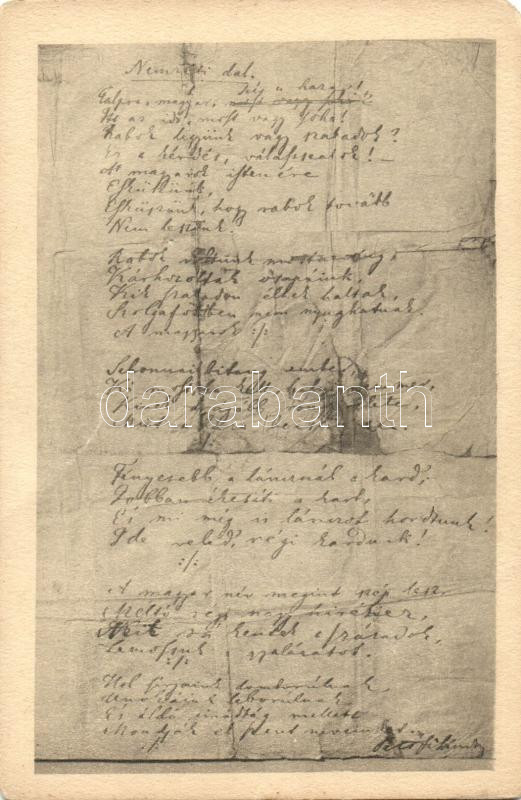 Nemzeti dal.
Talpra, magyar, hí a haza!
Itt az idő, most vagy soha!
Rabok legyünk vagy szabadok?
Ez a kérdés, válasszatok! –
A magyarok istenére
Esküszünk,
Esküszünk, hogy rabok tovább
Nem leszünk.
Rabok voltunk mostanáig,
Kárhozottak ősapáink,
Kik szabadon éltek haltak,
Szolgaföldben nem nyughatnak.
A magyarok :/:
Sehonnai bitang ember,
darabanth
:/:
Fényesebb a láncznál a kard,
Jobban ékesíti a kart,
És mi még is lánczot hordtunk!
Ide veled, régi kardunk!
:/:
A magyar név megint szép lesz,
Méltó régi nagy hiréhez,
Mit rá kentek a századok,
Lemossuk a gyalázatot.
:/:
Hol sírjaink domborulnak,
Unokáink leborulnak
És áldó imádság mellett
Mondják el szent neveinket.
Petőfi Sándor